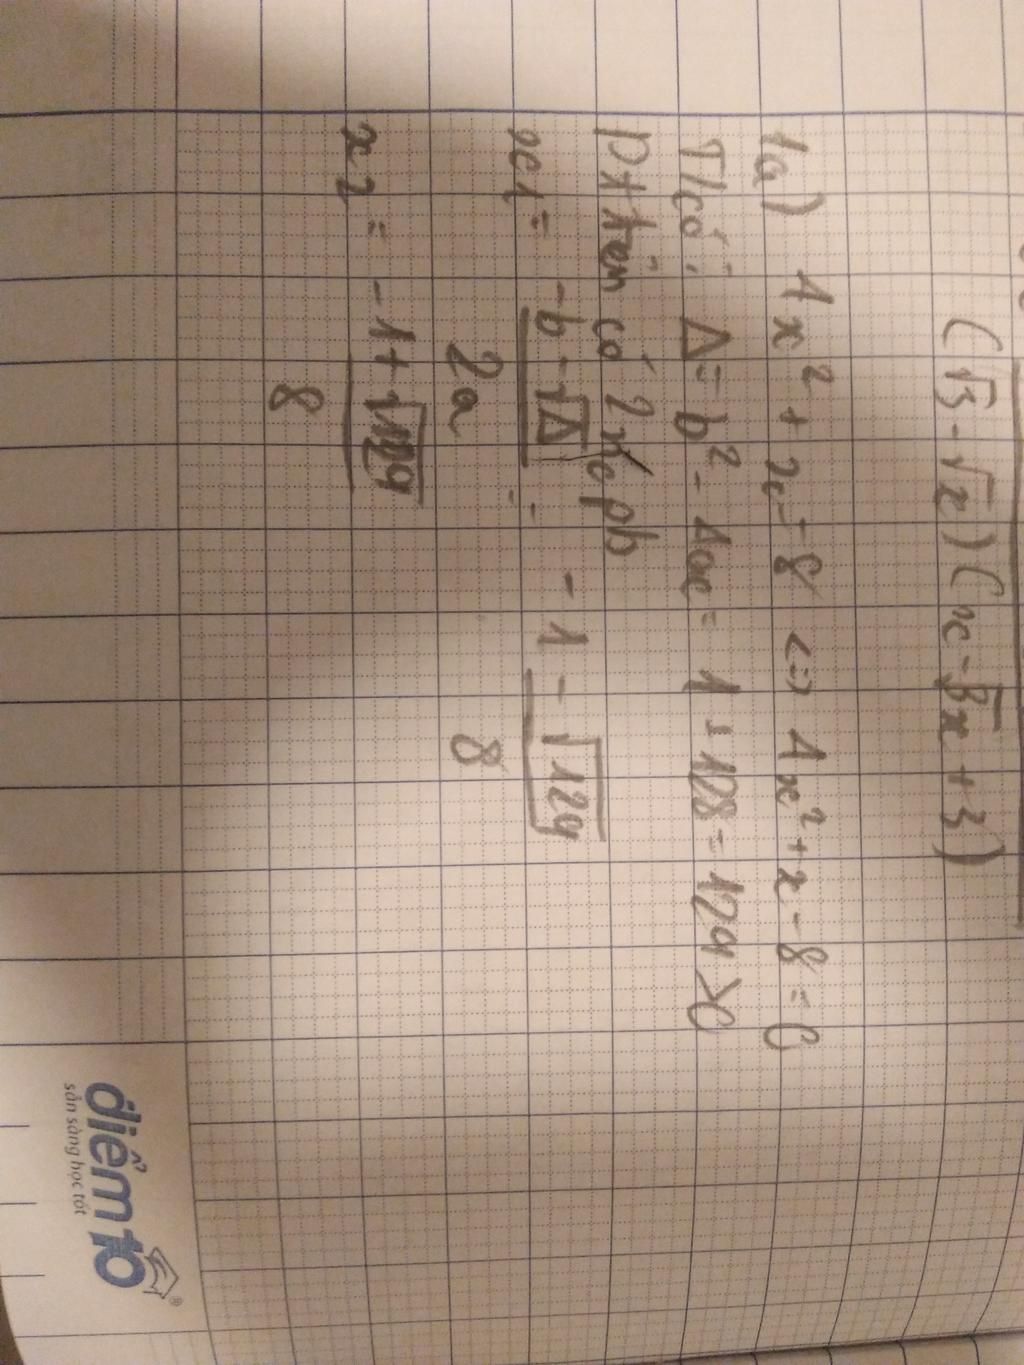 (√3 - √x)(x - √3x + 3)
1a) 4x² + x = 8 <=> 4x² + x - 8 = 0
T/có: Δ = b² - 4ac = 1 + 128 = 129 > 0
Pt trên có 2 no pb
x1 = -b - √Δ / 2a = -1 - √129 / 8
x2 = -1 + √129 / 8
điểm 10
sẵn sàng học tốt